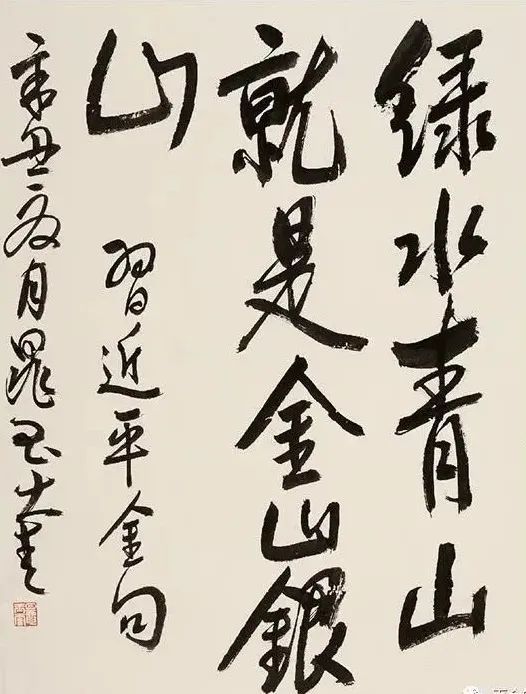 绿水青山
就是金山銀
山
習近平金句
辛丑夏月晁